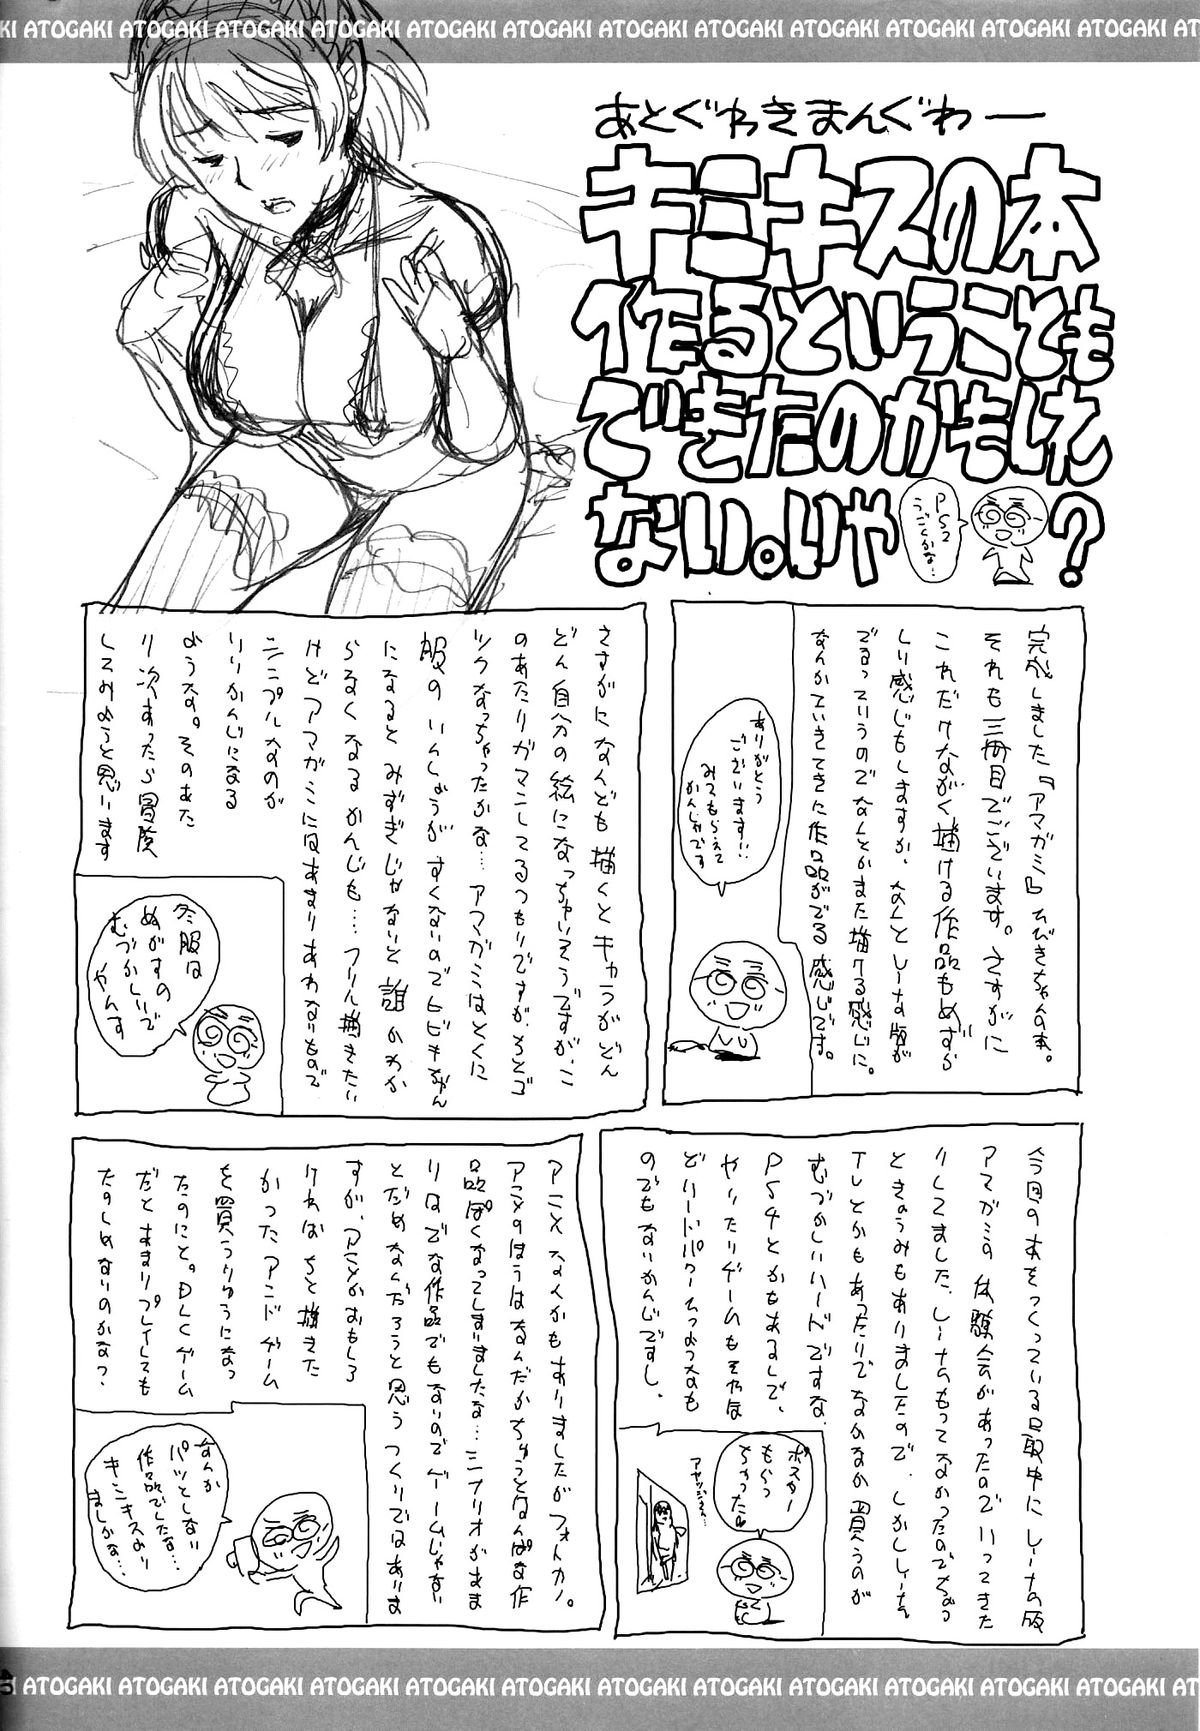 ATOGAKI ATOGAKI ATOGAKI ATOGAKI ATOGAKI ATOGAKI ATOGAKI ATOGAKI
あとぐわきまんぐわー
キミキスの本
作るということも
できたのかもしれ
ない。いや
?
PS2
うごくかな…
完成しました『アマガミ』ひびきちゃん本。
それも三冊目でございます。さすがに
これだけながく描ける作品もめずら
しい感じもしますが、なんとしーなの版が
でるっていうのでなんとかまた描ける感じに。
なんかていきてきた作品がでる感じです。
ありがとう
ございます!!
みてもらえて
かんしゃです
さすがになんども描くとキャラがどん
どん自分の絵になっちゃいそうですが、こ
のあたりガマンしてるつもりですが、ちとゴ
ツクなっちゃったかな…アマガミはとくに
服のいんしょうがすくないのでヒビキちゃん
になるとみずぎじゃないと誰かわか
らなくなるかんじも…フリル描きたい
けどアマガミにはあまりあわないもので
シンプルなのが
いいかんじになる
ような。そのあた
り次あったら冒険
してみようと思います
冬服は
ぬがすの
むづかしいで
やんす
今回の本をつくっている最中にしーなの版
アマガミの体験会があったのでいってきた
りしてました、しーなもってなかったのでちょっ
ときょうみもありましたので、しかししーなえ
TLとかもあったりでなかなか買うのが
むづかしいハードですな、
PS4とかもあるしで、
やいたいゲームもそんな
どハードパワーひつようなも
のでもないかんじですし。
ポスター
もらっ
ちゃった
アヤツジさん…
アニメなんかもありましたがフォトカノ。
アニメのほうはなんだかちゅうとはんぱな作
品ぽくなってしまいましたな…シナリオがまま
りはでな作品でもないのでゲームじゃない
とだめなんだろうと思うつくりではありま
すが、アニメがおもしろ
ければちと描きた
かったアンドゲーム
を買うりゆうになっ
たのにと。DLCゲーム
だとあまりプレイしても
たのしめないのかな?
なんか
パッとしない
作品でしたな…
キミキスより
ましかな…
ATOGAKI ATOGAKI ATOGAKI ATOGAKI ATOGAKI ATOGAKI ATOGAKI ATOGAKI